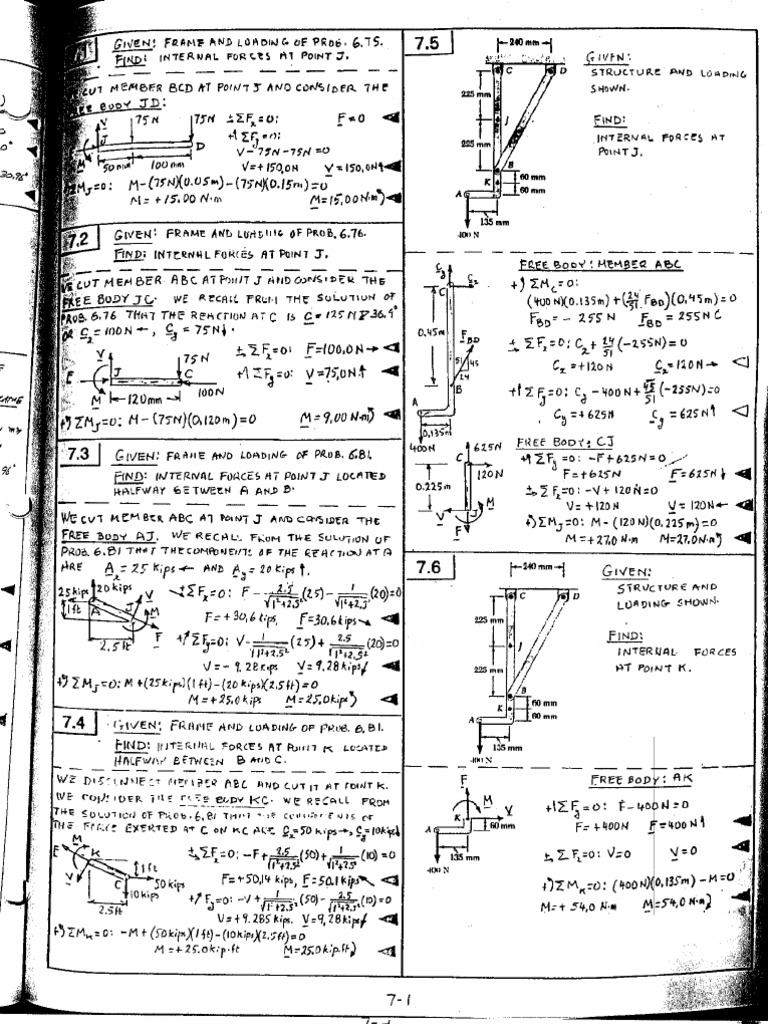 GIVEN: FRAME AND LOADING OF PROB. 6.75.
FIND: INTERNAL FORCES AT POINT J.
CUT MEMBER BCD AT POINT J AND CONSIDER THE
FREE BODY JD:
75N 75N
V
J
D
M
50 mm 100 mm
ΣFx=0: F=0
+↑ΣFy=0:
V-75N-75N=0
V=+150,0N V=150,0N↑
ΣMJ=0: M-(75N)(0.05m)-(75N)(0.15m)=0
M=+15.00 N·m M=15,00N·m)
7.2
GIVEN: FRAME AND LOADING OF PROB. 6.76.
FIND: INTERNAL FORCES AT POINT J.
WE CUT MEMBER ABC AT POINT J AND CONSIDER THE
FREE BODY JC. WE RECALL FROM THE SOLUTION OF
PROB. 6.76 THAT THE REACTION AT C IS C=125N 36.9°
OR Cx=100N←, Cy=75N↓.
V
75N
F
J
C
100N
M
120mm
ΣFx=0: F=100,0N→
+↑ΣFy=0: V=75,0N↑
+)ΣMJ=0: M-(75N)(0,120m)=0 M=9,00 N·m)
7.3
GIVEN: FRAME AND LOADING OF PROB. 6.81.
FIND: INTERNAL FORCES AT POINT J LOCATED
HALFWAY BETWEEN A AND B.
WE CUT MEMBER ABC AT POINT J AND CONSIDER THE
FREE BODY AJ. WE RECALL FROM THE SOLUTION OF
PROB. 6.81 THAT THE COMPONENTS OF THE REACTION AT A
ARE Ax=25 kips← AND Ay=20 kips↑.
25kips 20kips
1ft
A
J
V
M
F
2.5ft
ΣFx=0: F-2.5/√(1²+2.5²)(25)-1/√(1²+2.5²)(20)=0
F=+30,6 kips, F=30,6kips
+↑ΣFy=0: V-1/√(1²+2.5²)(25)+2.5/√(1²+2.5²)(20)=0
V=-9.28kips V=9.28kips
+)ΣMJ=0: M+(25kips)(1ft)-(20kips)(2.5ft)=0
M=+25.0kips M=25.0kips)
7.4
GIVEN: FRAME AND LOADING OF PROB. 6.81.
FIND: INTERNAL FORCES AT POINT K LOCATED
HALFWAY BETWEEN B AND C.
WE DISCONNECT MEMBER ABC AND CUT IT AT POINT K.
WE CONSIDER THE FREE BODY KC. WE RECALL FROM
THE SOLUTION OF PROB. 6.81 THAT THE COMPONENTS OF
THE FORCE EXERTED AT C ON KC ARE Cx=50 kips→, Cy=10kips↓
M
F
K
1ft
V
C
50kips
10kips
2.5ft
ΣFx=0: -F+2.5/√(1²+2.5²)(50)+1/√(1²+2.5²)(10)=0
F=+50,14 kips, F=50.1kips
+↑Fy=0: -V+1/√(1²+2.5²)(50)-2.5/√(1²+2.5²)(10)=0
V=+9.285kips. V=9,28kips
+)ΣMK=0: -M+(50kips)(1ft)-(10kips)(2.5ft)=0
M=+25.0kip·ft M=25.0kip.ft)
7.5
240 mm
C D
225 mm
J
225 mm
B
K
60 mm
A
60 mm
135 mm
400 N
GIVEN:
STRUCTURE AND LOADING
SHOWN.
FIND:
INTERNAL FORCES AT
POINT J.
FREE BODY: MEMBER ABC
Cy Cx
C
0.45m
FBD
51 45
24
B
A
0,135m
400N
+)ΣMC=0:
(400N)(0.135m)+(24/51 FBD)(0,45m)=0
FBD=-255N FBD=255N C
ΣFx=0: Cx+24/51(-255N)=0
Cx=+120N Cx=120N→
+↑ΣFy=0: Cy-400N+45/51(-255N)=0
Cy=+625N Cy=625N↑
FREE BODY: CJ
625N
C
120N
0.225m
M
V
J
F
+↑ΣFy=0: -F+625N=0
F=+625N F=625N↓
ΣFx=0: -V+120N=0
V=+120N V=120N←
+)ΣMJ=0: M-(120N)(0,225m)=0
M=+27.0N·m M=27.0N·m)
7.6
240 mm
C D
225 mm
J
225 mm
B
K
60 mm
A
60 mm
135 mm
400 N
GIVEN:
STRUCTURE AND
LOADING SHOWN.
FIND:
INTERNAL FORCES
AT POINT K.
FREE BODY: AK
F
M
V
K
60 mm
A
135 mm
400 N
+↑ΣFy=0: F-400N=0
F=+400N F=400N↑
ΣFx=0: V=0 V=0
+)ΣMK=0: (400N)(0,135m)-M=0
M=+54,0 N·m M=54,0 N·m)
7-1